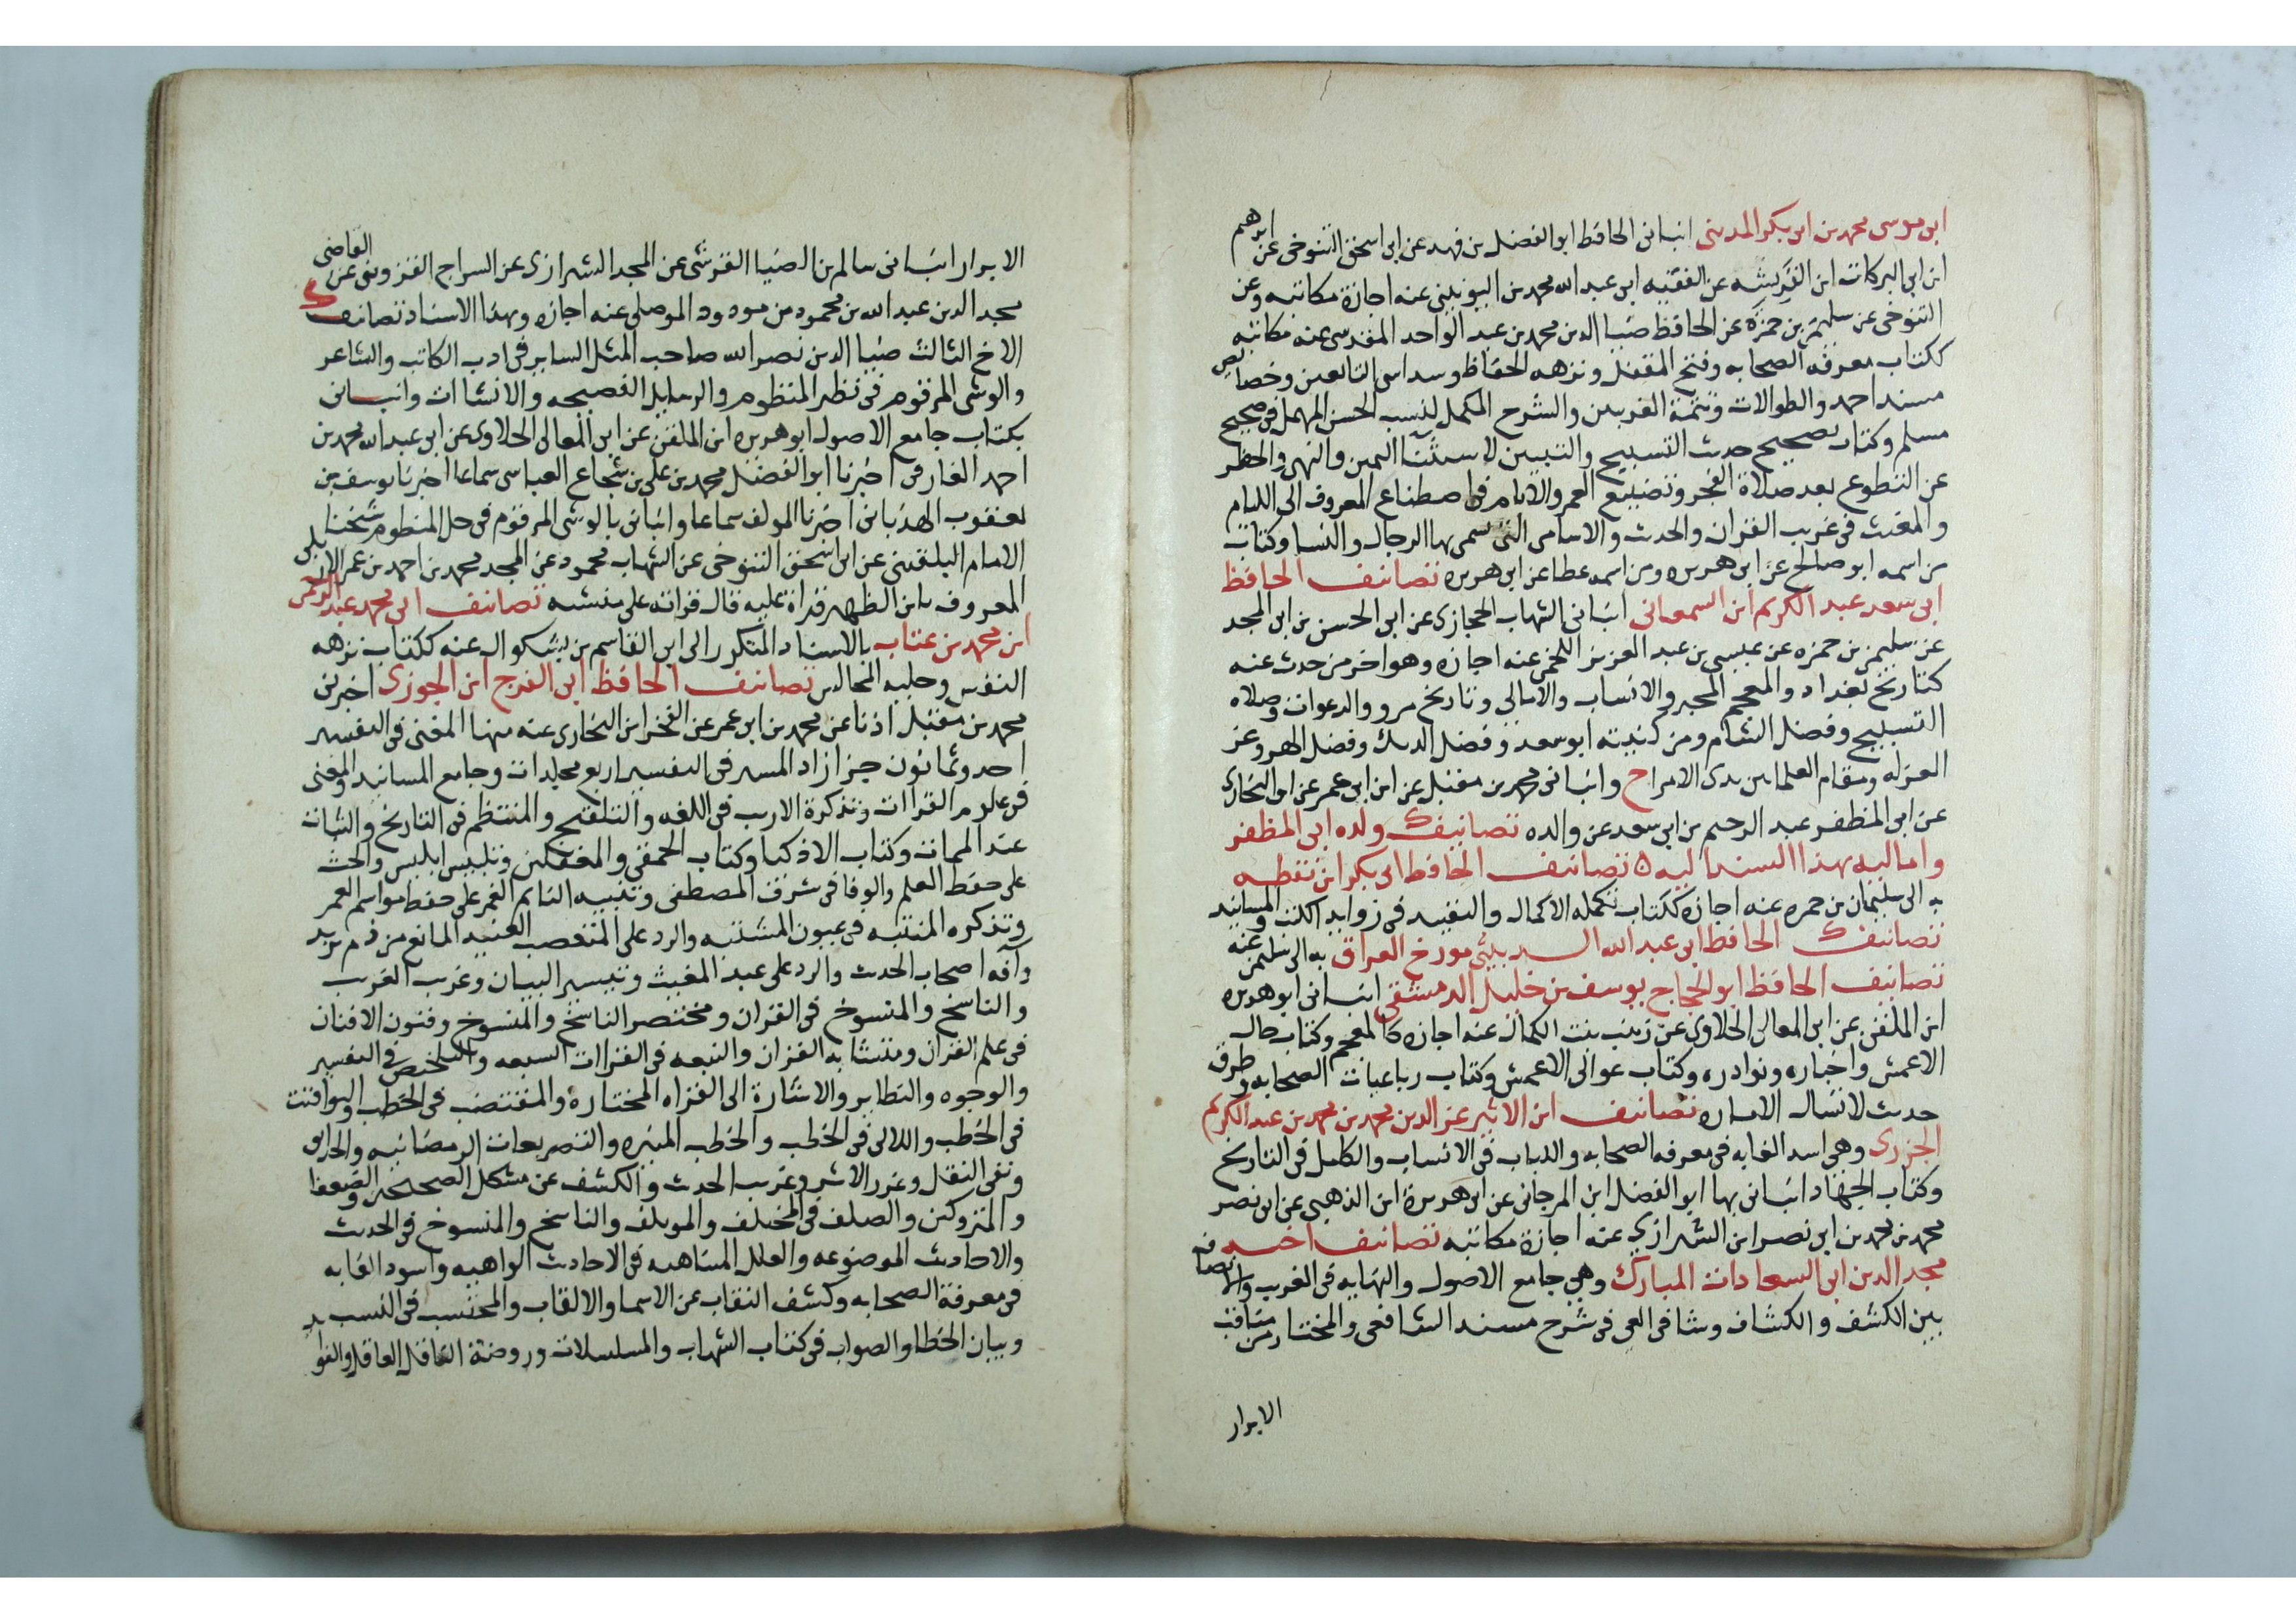 ابى موسى محمد بن ابى بكر المدينى انبانى الحافظ ابو الفضل بن فهد عن ابى اسحق التنوخى عن ابرهيم
ابن ابى البركات ابن القريشه عن الفقيه ابى عبد الله محمد بن اليونينى عنه اجازة مكاتبه وعن
التنوخى عن سليمن بن حمزة عن الحافظ ضيا الدين محمد بن عبد الواحد المقدسى عنه مكاتبه
ككتاب معرفه الصحابه وفتح المقفل ونزهه الحفاظ وسداسى التابعين وخصايص
مسند احمد والطوالات وتتمة الغريبين والشرح المكمل لنسب الحسن المهمل فى صحيح
مسلم وكتاب تصحيح حديث التسبيح والتبيين اليمين والنهى والحظر
عن التطوع بعد صلاة الفجر وتضييع العمر والايام فى اصطناع المعروف الى الليام
والمغيث فى غريب القران والحديث والاسامى التى سمى بها الرجال والنسا وكتاب
من اسمه ابو صالح عن ابى هريره ومن اسمه عطا عن ابى هريره تصانيف الحافظ
ابى سعد عبد الكريم ابن السمعانى انبانى الشهاب الحجازى عن ابى الحسن بن ابى المجد
عن سليمن بن حمزه عن عيسى بن عبد العزيز اللخمى عنه اجازه وهو اخر من حدث عنه
كتاريخ بغداد والمعجم المحبر والانساب والامالى وتاريخ مرو والدعوات وصلاه
التسبيح وفضل الشام ومن كنيته ابو سعد وفضل الديك وفضل الهر وعز
العزله ومقام العلما بين يدى الامرا ح وانبانى محمد بن مقبل عن ابن ابى عمر عن ابن البخارى
عن ابى المظفر عبد الرحيم بن ابى سعد عن والده تصانيف ولده ابى المظفر
واماليه بهذا السند اليه ٥ تصانيف الحافظ ابى بكر ابن نقطه
به الى سليمان بن حمزه عنه اجازه ككتاب تكمله الاكمال والتقييد فى زوايد الكتب والمسانيد
تصانيف الحافظ ابى عبد الله الدبيثى مورخ العراق به الى سليمن عنه
تصانيف الحافظ ابو الحجاج يوسف بن خليل الدمشقى انبانى ابو هريره
ابن الملقن عن ابى المعالى الحلاوى عن زينب بنت الكمال عنه اجازه كالمعجم وكتاب حال
الاعمش واخباره ونوادره وكتاب عوالى الاعمش وكتاب رباعيات الصحابه وطرق
حديث لا تسال الاماره تصانيف ابن الاثير عز الدين محمد بن محمد بن عبد الكريم
الجزرى وهى اسد الغابه فى معرفه الصحابه واللباب فى الانساب والكامل فى التاريخ
وكتاب الجهاد انبانى بها ابو الفضل ابن المرجانى عن ابى هريرة ابن الذهبى عن ابى نصر
محمد بن محمد بن ابى نصر ابن الشيرازى عنه اجازة مكاتبه تصانيف اخيه
مجد الدين ابى السعادات المبارك وهى جامع الاصول والنهايه فى الغريب والانصاف
بين الكشف والكشاف وشافى العى فى شرح مسند الشافعى والمختار من مناقب
الابرار
الابرار انبانى سالم بن الضيا القرشى عن المجد الشيرازى عن السراج القزوينى عن القاضى
مجد الدين عبد الله بن محمود بن مودود الموصلى عنه اجازه وبهذا الاسناد تصانيف
الاخ الثالث ضيا الدين نصر الله صاحب المثل الساير فى ادب الكاتب والشاعر
والوشى المرقوم فى نظم المنظوم والرسايل الفصيحه والانشاات وانبانى
بكتاب جامع الاصول ابو هريره ابن الملقن عن ابى المعالى الحلاوى عن ابى عبد الله محمد بن
احمد الفارقى اخبرنا ابو الفضل محمد بن على بن شجاع العباسى سماعا اخبرنا يوسف بن
يعقوب الهذبانى اخبرنا المولف سماعا وانبانى بالوشى المرقوم فى حل المنظوم شيخنا
الامام البلقينى عن ابى اسحق التنوخى عن الشهاب محمود عن المجد محمد بن احمد بن عمر الاربلى
المعروف بابن الظهير قراة عليه قال قراته على منشيه تصانيف ابى محمد عبد الرحمن
ابن محمد بن عتاب بالاسناد المتكرر الى ابى القاسم بن بشكوال عنه ككتاب نزهه
النفوس وحليه المجالس تصانيف الحافظ ابى الفرج ابن الجوزى اخبرنى
محمد بن مقبل اذنا عن محمد بن ابى عمر عن الفخر ابن البخارى عنه منها المغنى فى التفسير
احد وثمانون جزا زاد المسير فى التفسير اربع مجلدات وجامع المسانيد والمغنى
فى علوم القراات وتذكرة الاريب فى اللغه والتلقيح والمنتظم فى التاريخ والثبات
عند الممات وكتاب الاذكيا وكتاب الحمقى والمغفلين وتلبيس ابليس والحث
على حفظ العلم والوفا فى شرف المصطفى وتنبيه النايم الغمر على حفظ مواسم العمر
وتذكره المنتبه فى عيون المشتبه والرد على المتعصب العنيد المانع من ذم يزيد
وآفه اصحاب الحديث والرد على عبد المغيث وتيسير البيان وغريب الغريب
والناسخ والمنسوخ فى القران ومختصر الناسخ والمنسوخ وفنون الافنان
فى علم القران ومتشابه القران والتبعه فى القراات السبعه والتلخيص فى التفسير
والوجوه والنظاير والاشارة الى القراه المختارة والمقتضب فى الخطب واليواقيت
فى الخطب واللالى فى الخطب والخطب المنبره والتنصريعات الرمضانيه والحدايق
ونفى النقل وغرر الاثر وغريب الحديث والكشف عن مشكل الصحيحين والضعفا
والمتروكين والصلف فى المختلف والموتلف والناسخ والمنسوخ فى الحديث
والاحاديث الموضوعه والعلل المتناهيه فى الاحاديث الواهيه واسود الغابه
فى معرفة الصحابه وكشف النقاب عن الاسما والالقاب والمحتسب فى النسب
وبيان الخطا والصواب فى كتاب الشهاب والمسلسلات وروضة الناقل العاقل